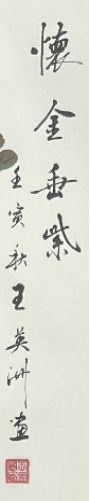 懷金垂紫
壬寅秋王英洲畫